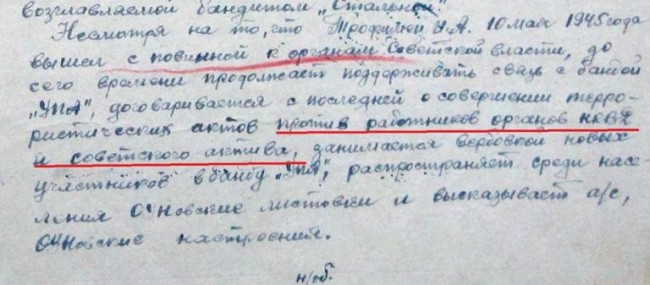 возглавляемой бандитом „Стальной".
Несмотря на то, что Трофимчу И.А. 10 мая 1945 года
вышел с повинной к органам Советской власти, до
сего времени продолжает поддерживать связь с бандой
„УПА", договаривается с последней о совершении терро-
ристических актов против работников органов НКВД
и советского актива, занимается вербовкой новых
участников в банду „УПА", распространяет среди насе-
ления ОУНовские листовки и высказывает а/с,
ОУНовские настроения.
н/об.